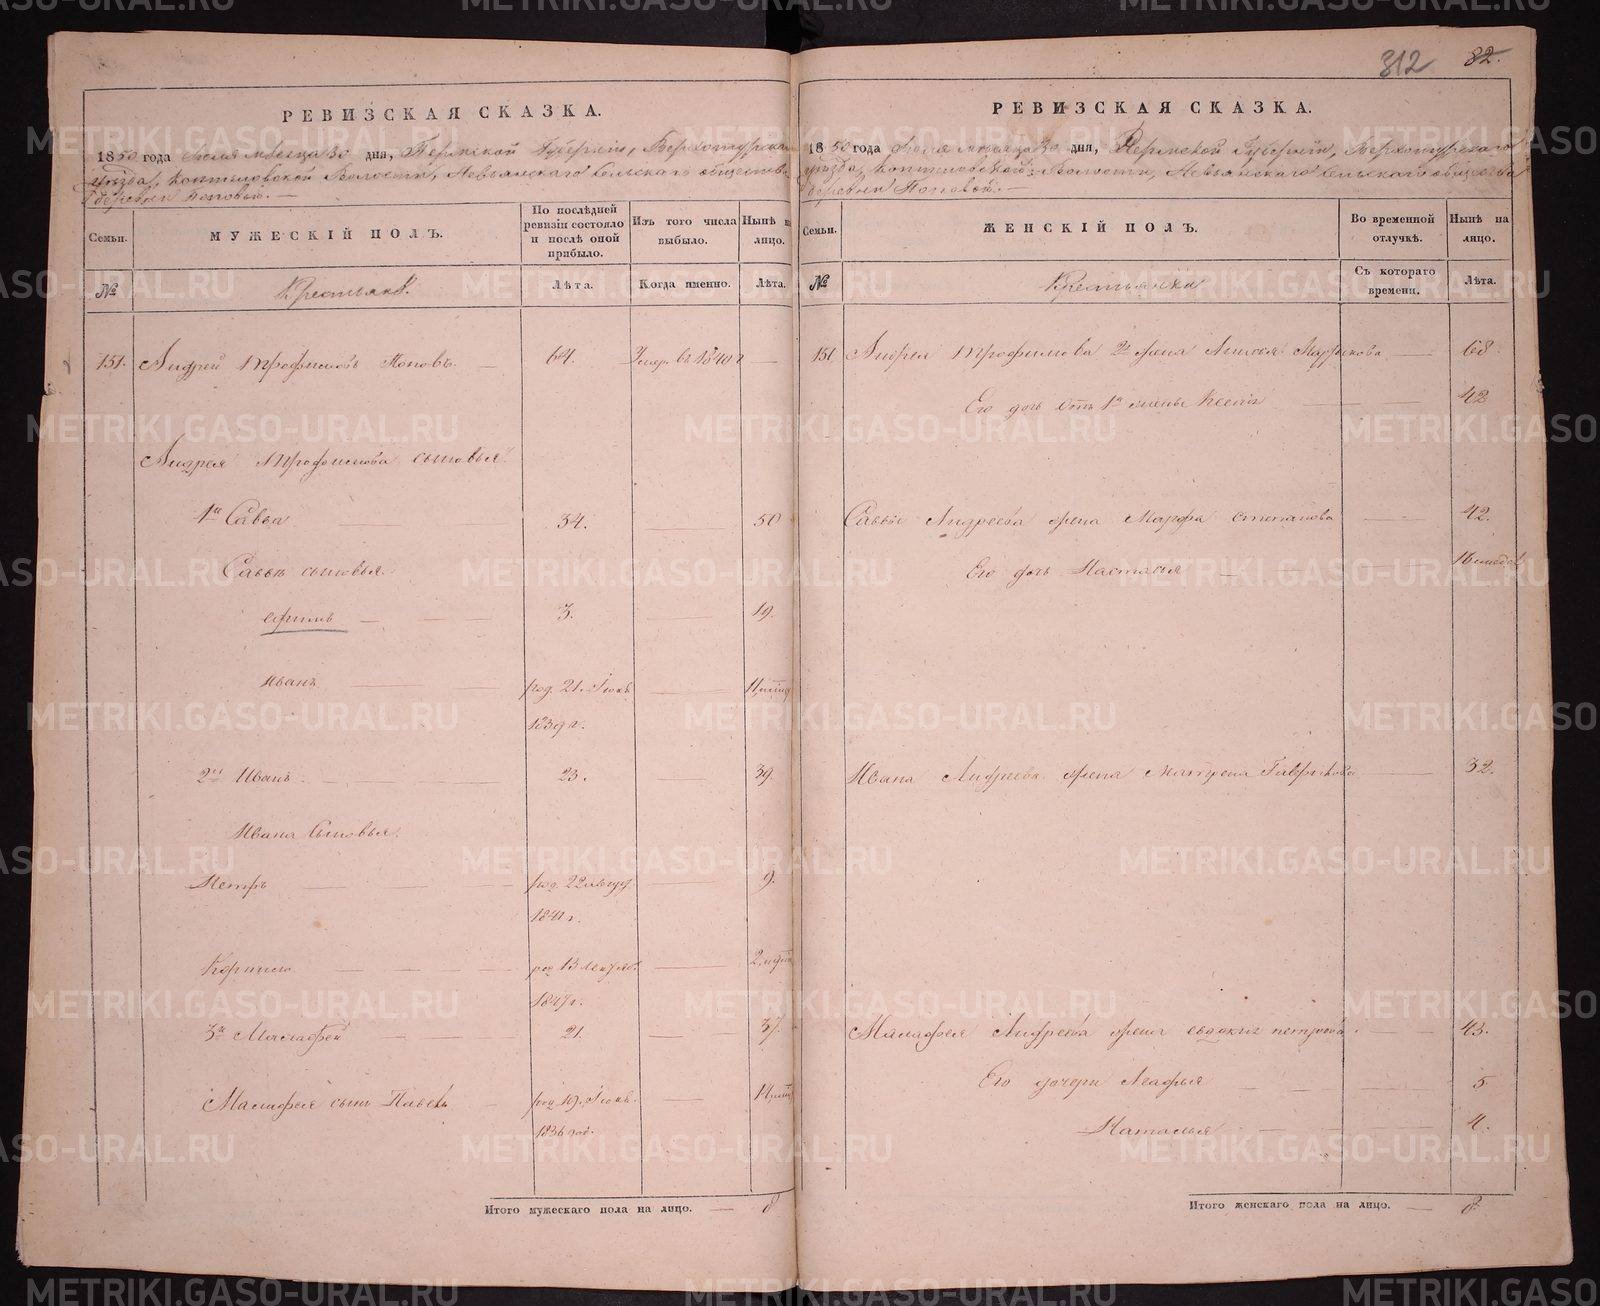 312 82.
РЕВИЗСКАЯ СКАЗКА.
1850 года Июля месяца 30 дня, Пермской Губернии, Верхотурска
уезда, Коптеловской Волости, Невьянскаго Сельскаго обществ
деревни Поповой.
Семьи.
МУЖЕСКІЙ ПОЛЪ.
По послѣдней ревизіи состояло и послѣ оной прибыло.
Изъ того числа выбыло.
Нынѣ на лицо.
№
Крестьянъ.
Лѣта.
Когда именно.
Лѣта.
151. Андрей Трофимовъ Поповъ. 64. Умер. въ 1840 г
Андрея Трофимова сыновья
1й Савва 34. 50
Саввы сыновья.
Ефимъ 3. 19.
Иванъ род. 21. 11
1839 г.
2й Иванъ 23. 39.
Ивана Сыновья.
Петръ род. 22 август 9.
1841 г.
Корнило род 13 2
1847 г.
3й Малафей 21. 37.
Малафея сынъ Павелъ род 19. 14
1836 год.
Итого мужескаго пола на лицо. 8
РЕВИЗСКАЯ СКАЗКА.
1850 года Июля месяца 30 дня, Пермской Губернии, Верхотурскаго
уезда, Коптеловской Волости, Невьянскаго Сельскаго общества
деревни Поповой.
Семьи.
ЖЕНСКІЙ ПОЛЪ.
Во временной отлучкѣ.
Нынѣ на лицо.
№
Крестьянка
Съ котораго времени.
Лѣта.
151 Андрея Трофимова 2я жена Анисья Маркова 68.
Его дочь отъ 1й жены Ксенія 42
Саввы Андреева жена Марфа Степанова 42.
Его дочь Настасья 16 недѣл
Ивана Андреева жена Матрена Гаврилова 32.
Малафея Андреева жена Евдокия Петрова 43.
Его дочери Агафья 5.
Наталья 4.
Итого женскаго пола на лицо. 8.
METRIKI.GASO-URAL.RU